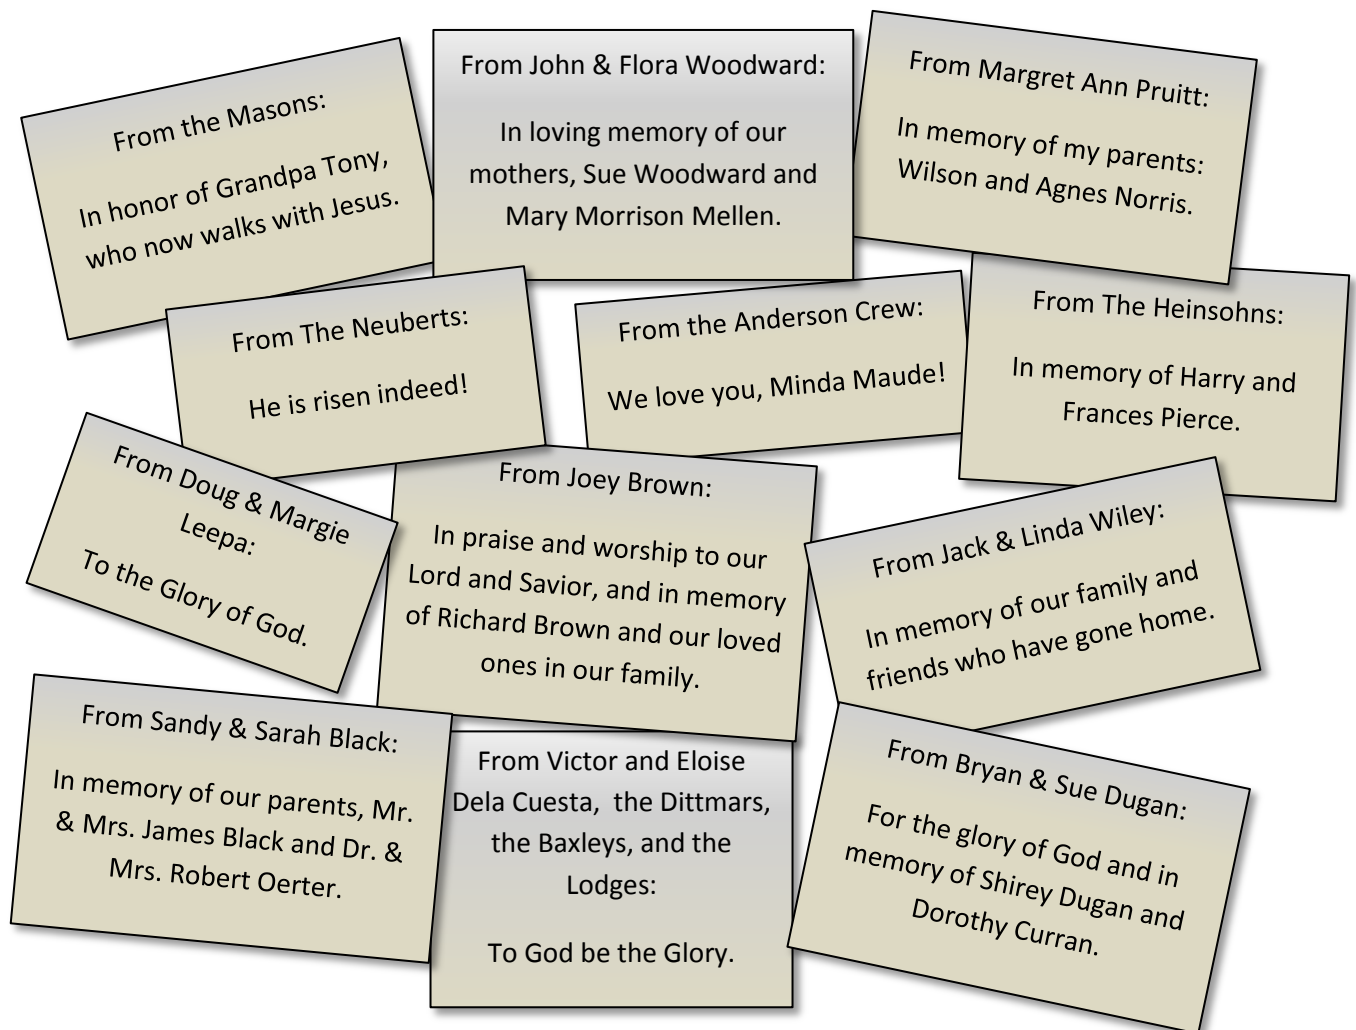 From the Masons:
In honor of Grandpa Tony,
who now walks with Jesus.
From John & Flora Woodward:
In loving memory of our
mothers, Sue Woodward and
Mary Morrison Mellen.
From Margret Ann Pruitt:
In memory of my parents:
Wilson and Agnes Norris.
From The Neuberts:
He is risen indeed!
From the Anderson Crew:
We love you, Minda Maude!
From The Heinsohns:
In memory of Harry and
Frances Pierce.
From Doug & Margie
Leepa:
To the Glory of God.
From Joey Brown:
In praise and worship to our
Lord and Savior, and in memory
of Richard Brown and our loved
ones in our family.
From Jack & Linda Wiley:
In memory of our family and
friends who have gone home.
From Sandy & Sarah Black:
In memory of our parents, Mr.
& Mrs. James Black and Dr. &
Mrs. Robert Oerter.
From Victor and Eloise
Dela Cuesta, the Dittmars,
the Baxleys, and the
Lodges:
To God be the Glory.
From Bryan & Sue Dugan:
For the glory of God and in
memory of Shirey Dugan and
Dorothy Curran.